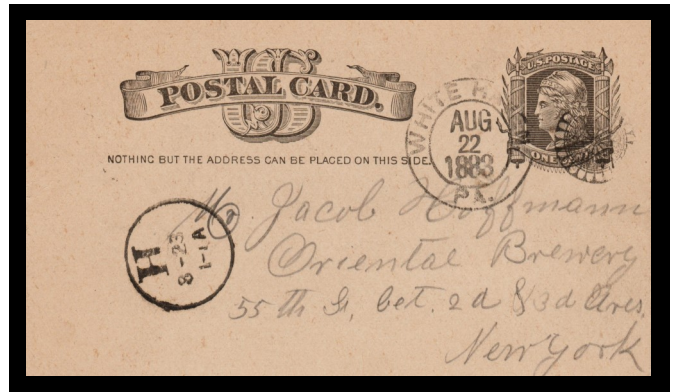 U.S. POSTAGE
US
POSTAL CARD.
NOTHING BUT THE ADDRESS CAN BE PLACED ON THIS SIDE.
WHITE
AUG
22
1883
PA.
ONE
H
8-23
1-1A
Mr. Jacob Hoffmann
Oriental Brewery
55th St, bet. 2d & 3d Aves,
New York